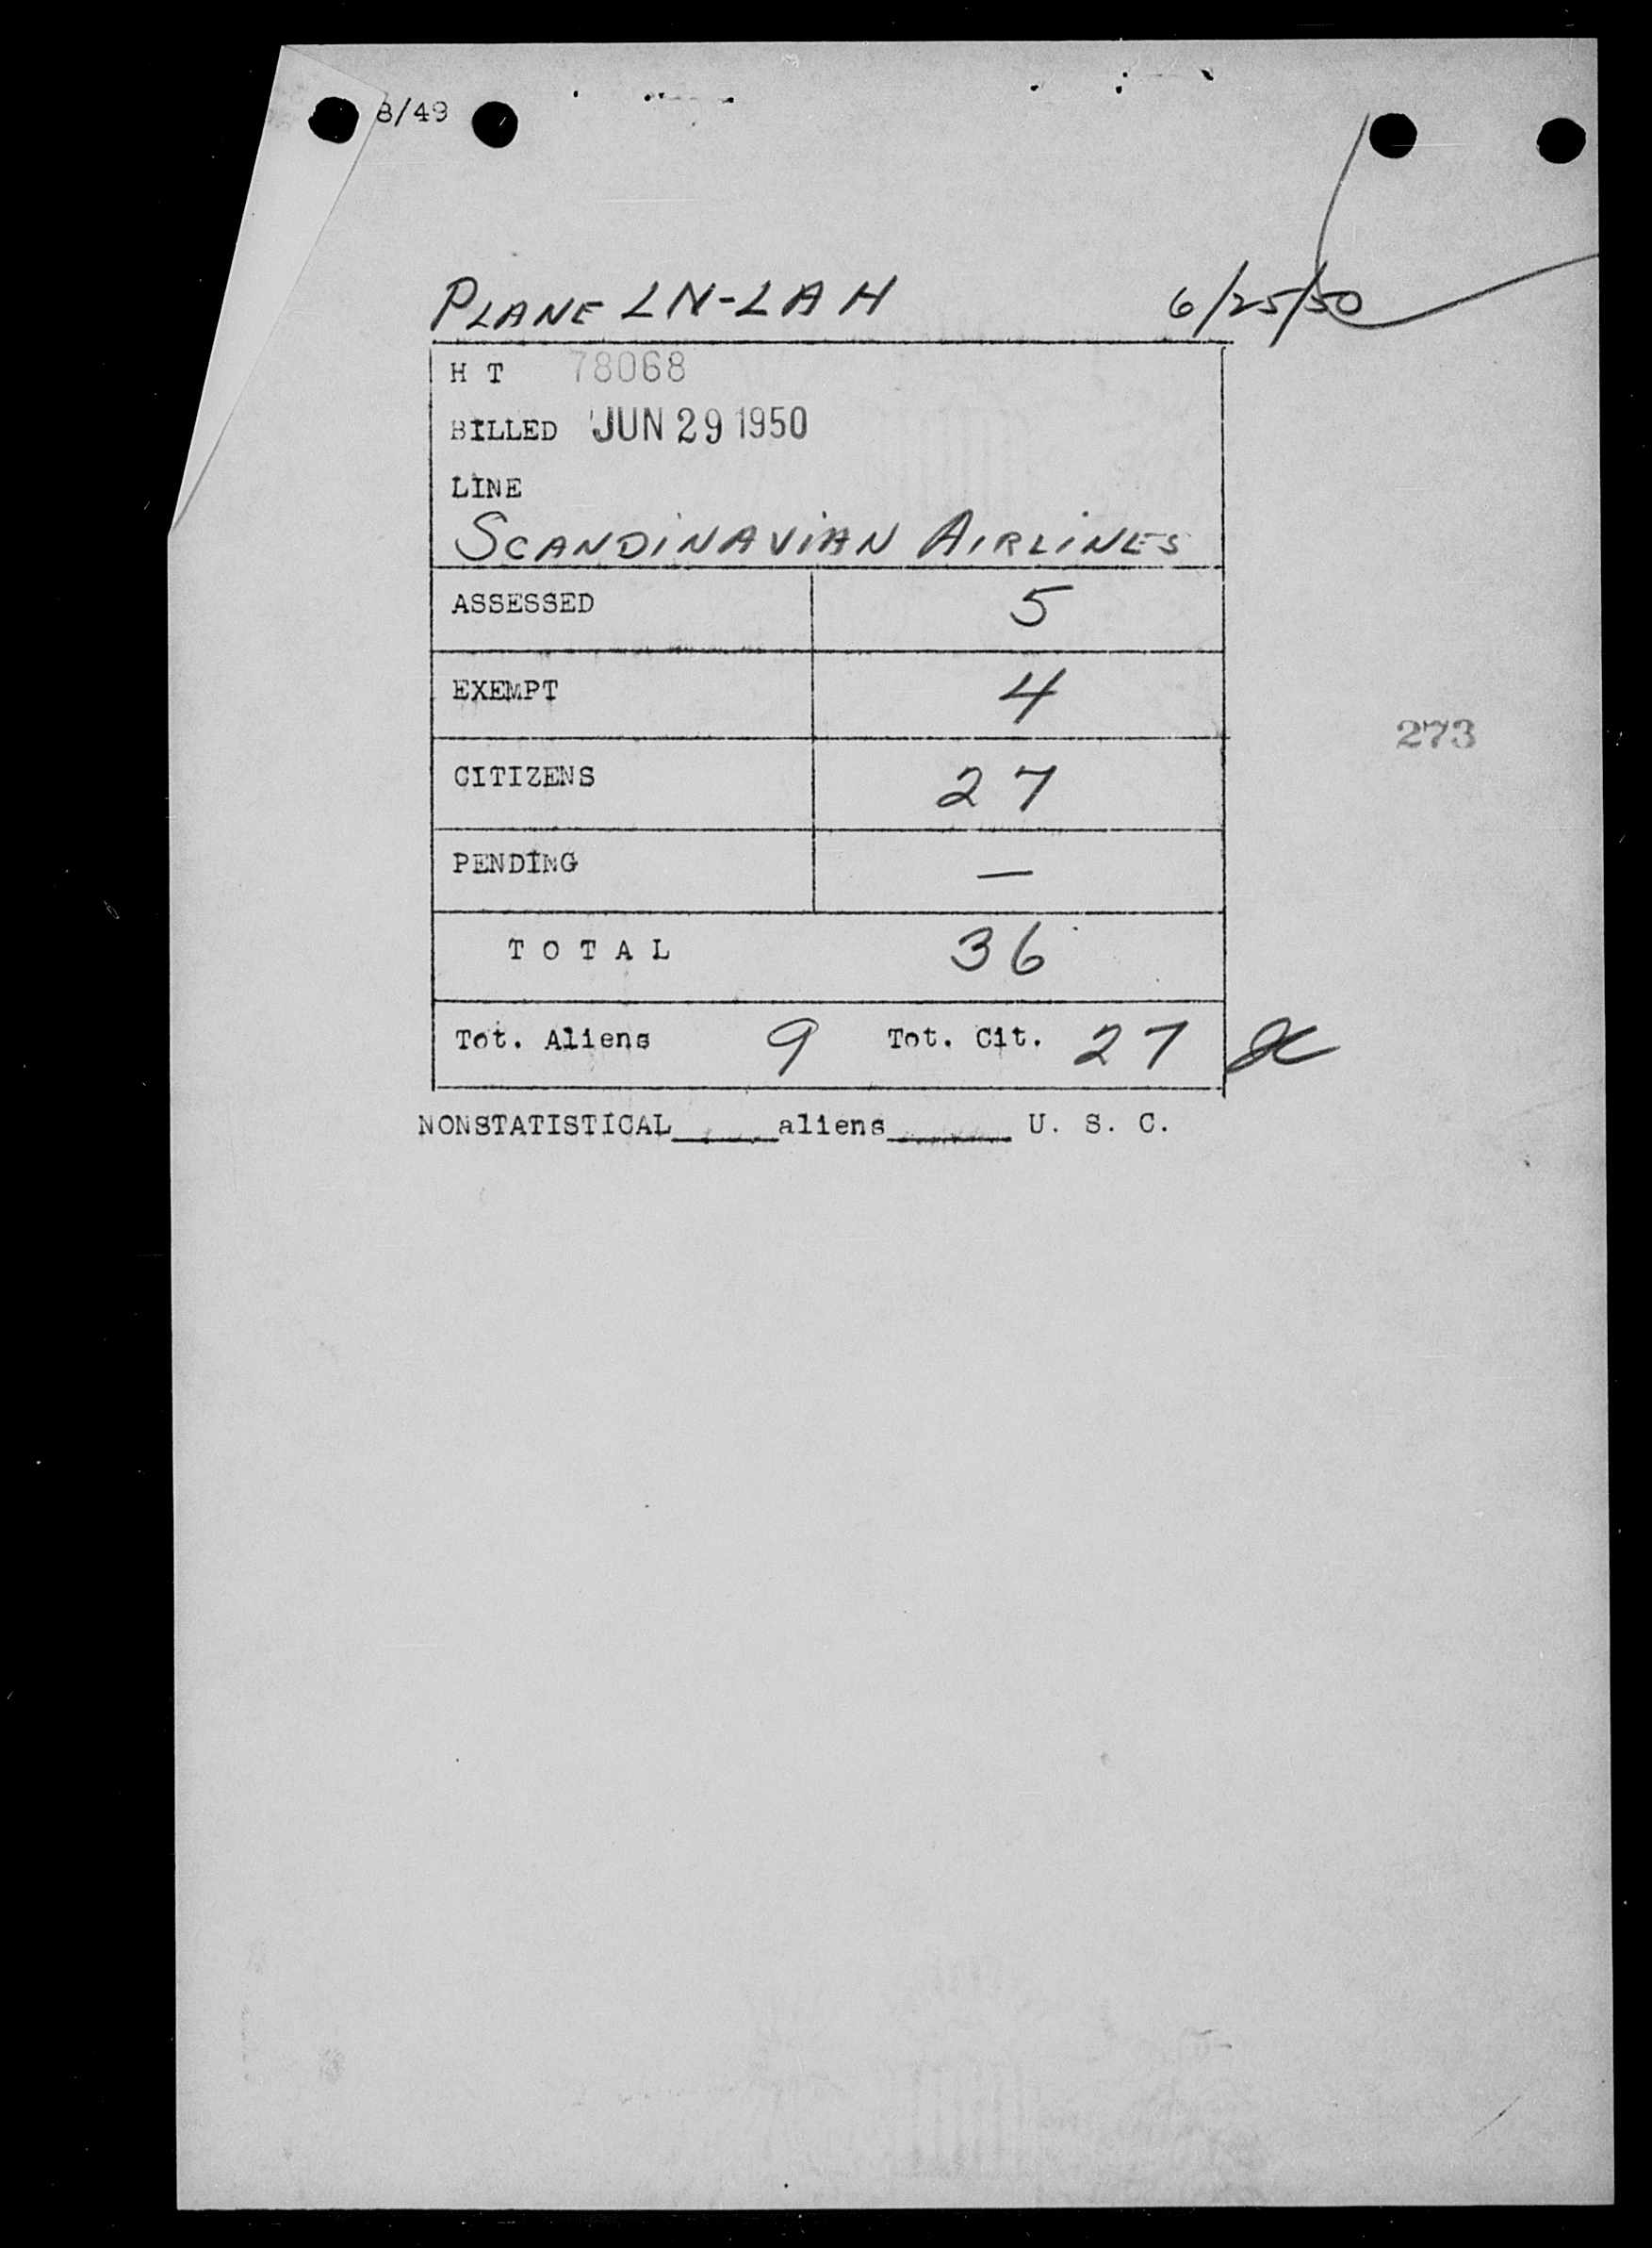 8/49
PLANE LN-LAH 6/25/50
H T 78068
BILLED JUN 29 1950
LINE
SCANDINAVIAN AIRLINES
ASSESSED 5
EXEMPT 4
273
CITIZENS 27
PENDING —
TOTAL 36
Tot. Aliens 9 Tot. Cit. 27
NONSTATISTICAL_____aliens______ U. S. C.